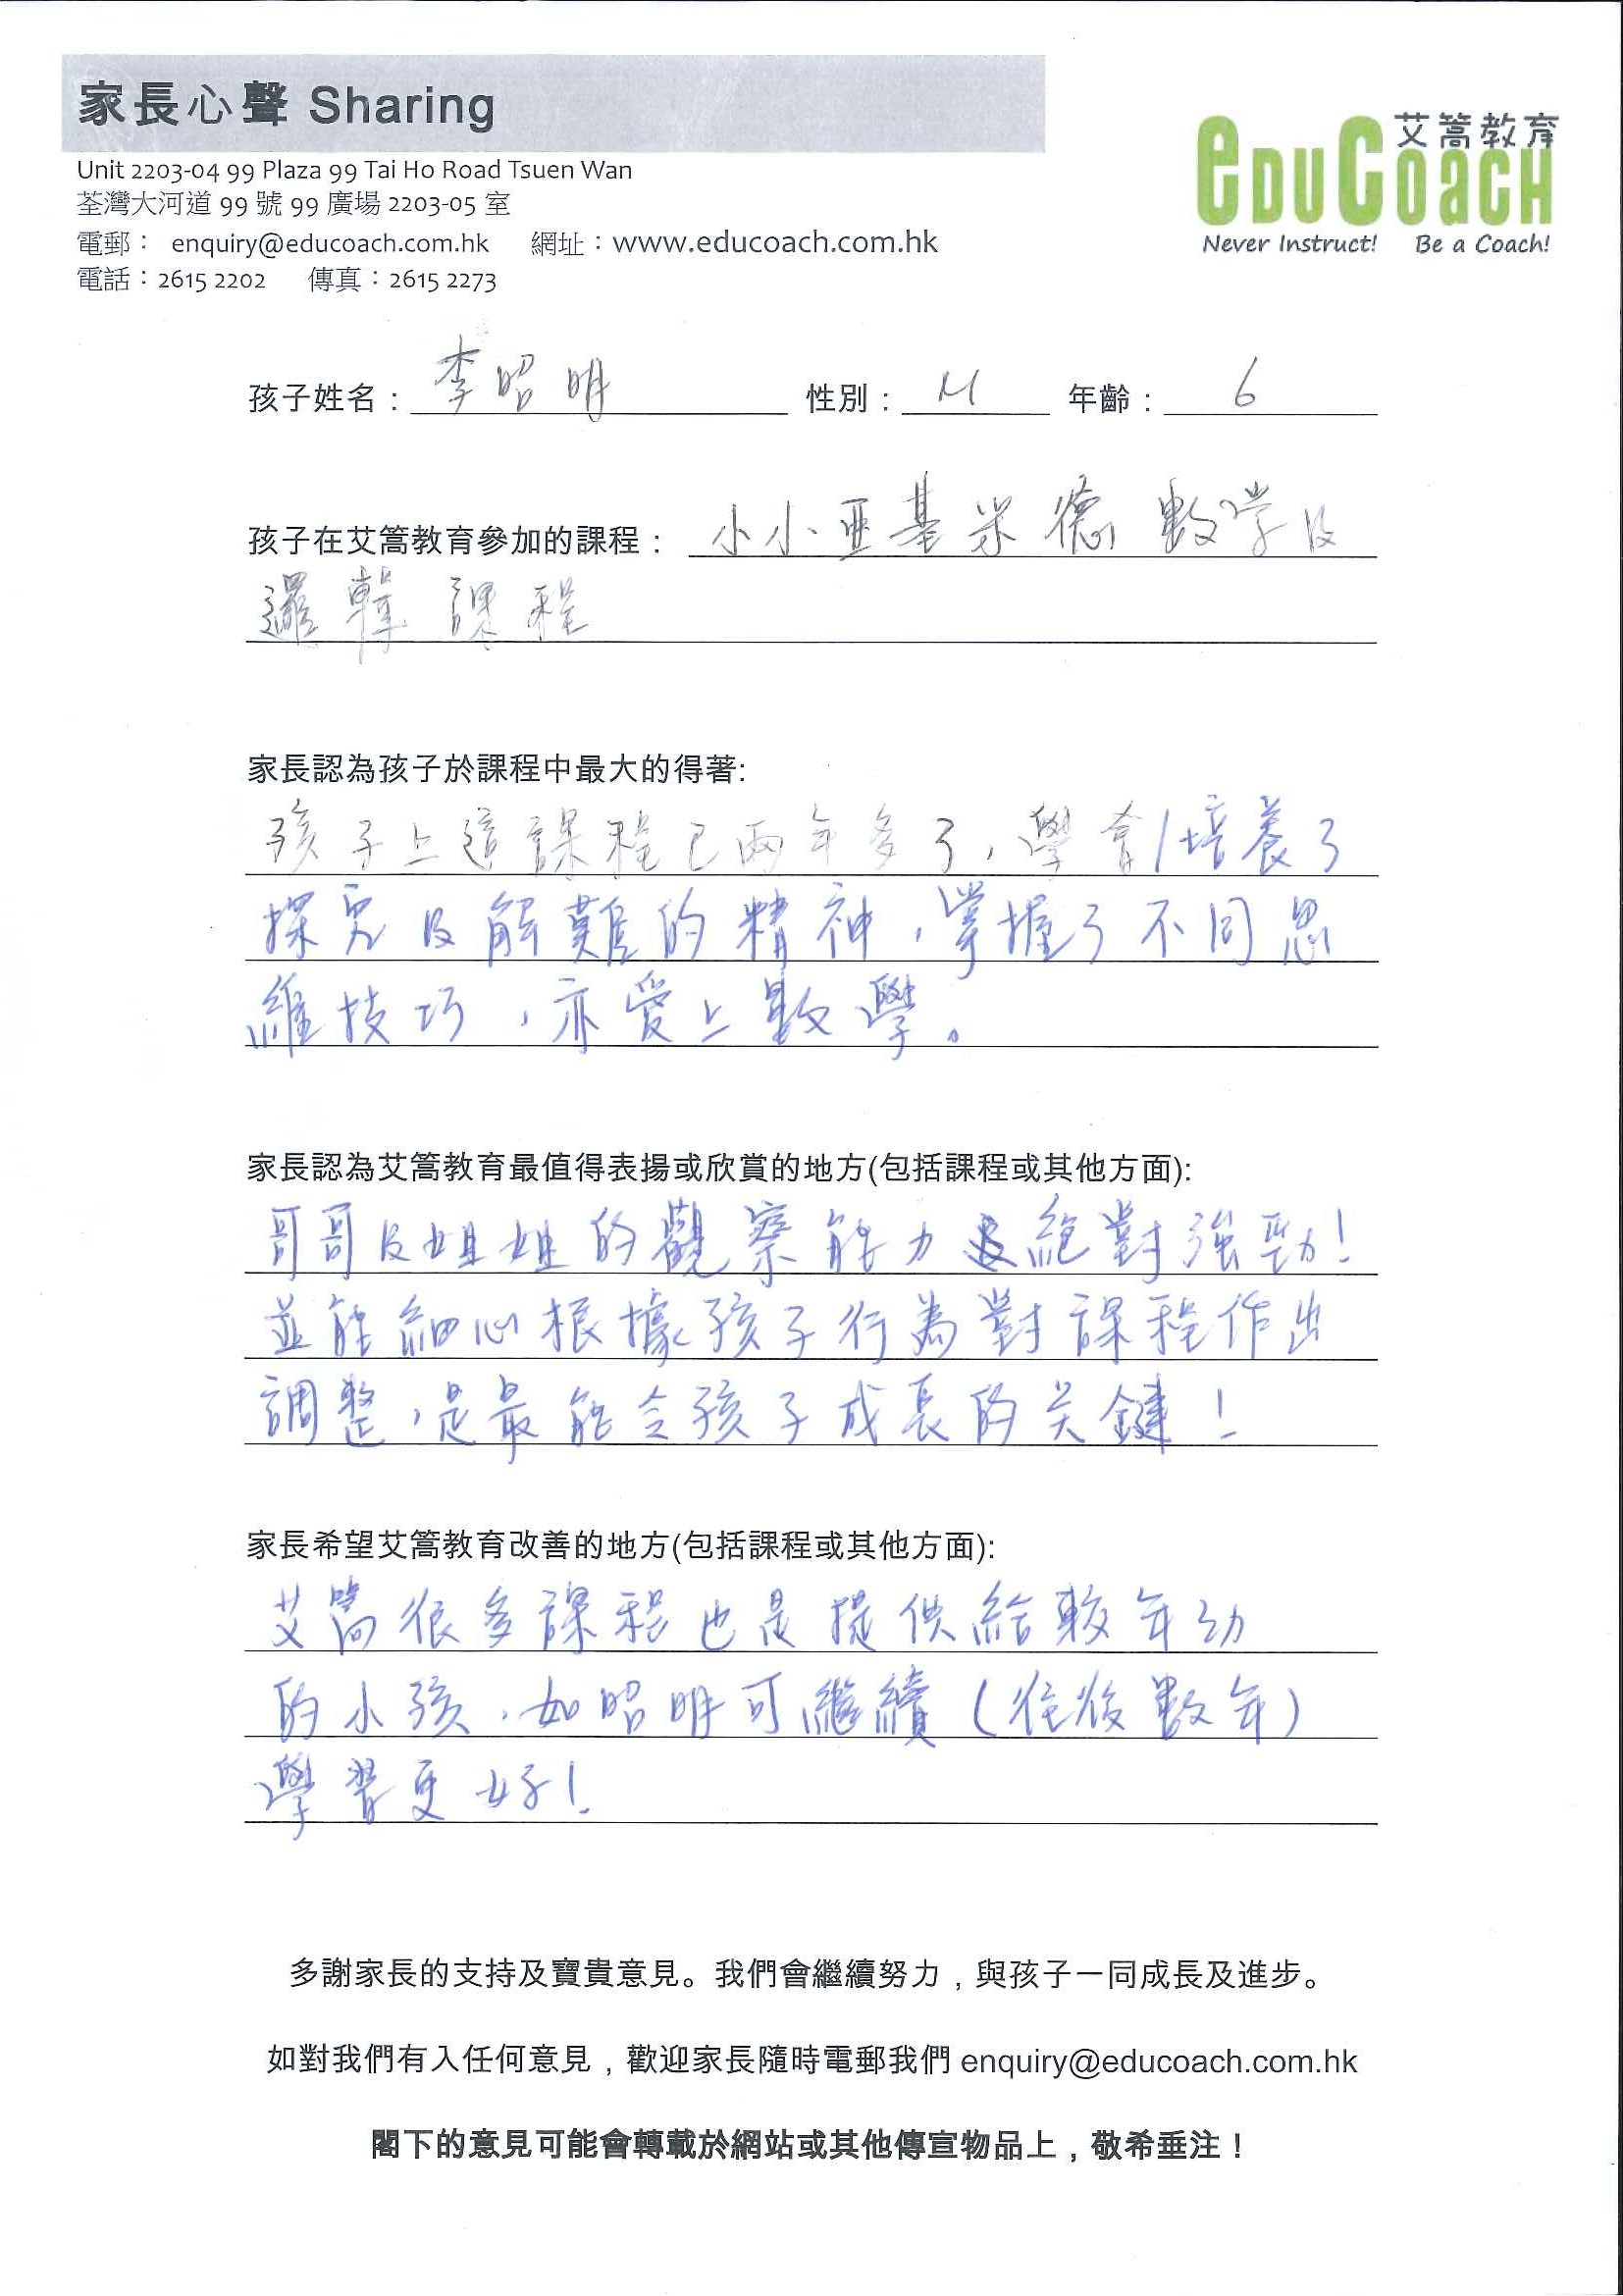 家長心聲 Sharing
艾篙教育
EDUCOACH
Never Instruct! Be a Coach!
Unit 2203-04 99 Plaza 99 Tai Ho Road Tsuen Wan
荃灣大河道 99 號 99 廣場 2203-05 室
電郵： enquiry@educoach.com.hk 網址：www.educoach.com.hk
電話：2615 2202 傳真：2615 2273
孩子姓名：李昭明 性別：M 年齡：6
孩子在艾篙教育參加的課程： 小小亜基米德數学及
邏輯課程
家長認為孩子於課程中最大的得著:
孩子上這課程已兩年多了，學會/培養了
探究及解難的精神，掌握了不同思
維技巧，亦愛上數學。
家長認為艾篙教育最值得表揚或欣賞的地方(包括課程或其他方面):
哥哥及姐姐的觀察能力絕對強勁！
並能細心根據孩子行為對課程作出
調整，是最能令孩子成長的关鍵！
家長希望艾篙教育改善的地方(包括課程或其他方面):
艾篙很多課程也是提供給較年幼
的小孩，如昭明可繼續（往後數年）
學習更好！
多謝家長的支持及寶貴意見。我們會繼續努力，與孩子一同成長及進步。
如對我們有入任何意見，歡迎家長隨時電郵我們 enquiry@educoach.com.hk
閣下的意見可能會轉載於網站或其他傳宣物品上，敬希垂注！